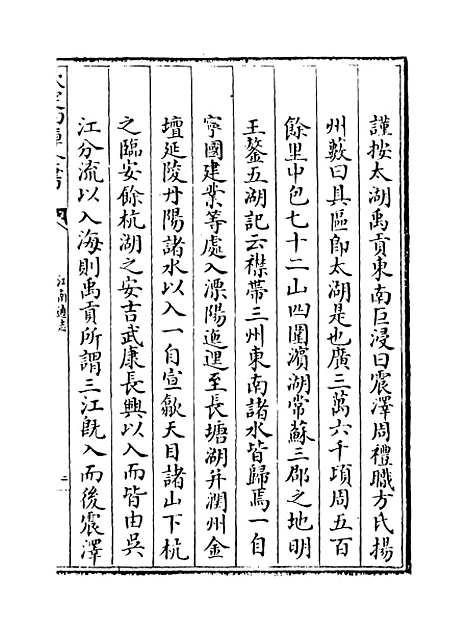 謹按太湖禹貢東南巨浸曰震澤周禮職方氏揚
州藪曰具區即太湖是也廣三萬六千頃周五百
餘里中包七十二山四圍濱湖常蘇三郡之地明
王鏊五湖記云襟帶三州東南諸水皆歸焉一自
寧國建業等處入溧陽迤邐至長塘湖并潤州金
壇延陵丹陽諸水以入一自宣歙天目諸山下杭
之臨安餘杭湖之安吉武康長興以入而皆由吳
江分流以入海則禹貢所謂三江既入而後震澤
江南通志
二